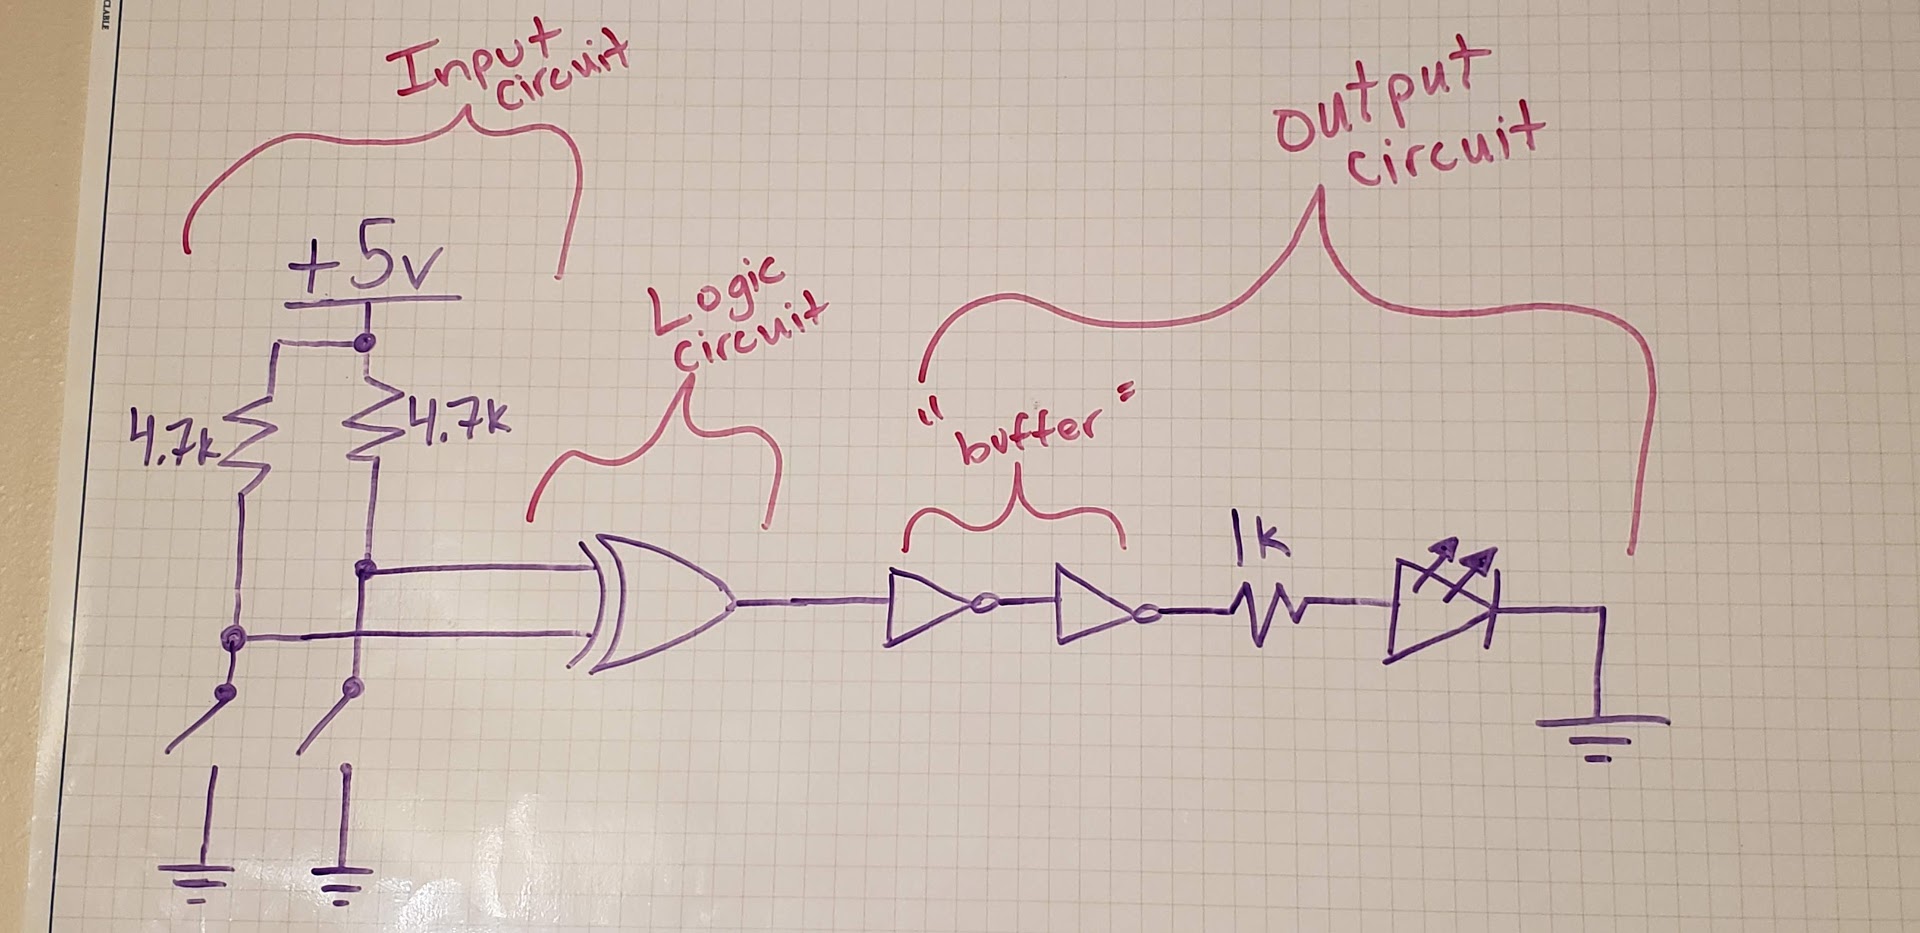 CLABLE
Input
circuit
Output
circuit
+5v
Logic
circuit
4.7k
4.7k
"buffer"
1k